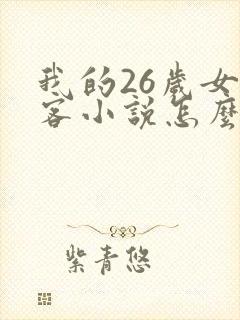 我的26歲女
客小說怎麼
紫青悠